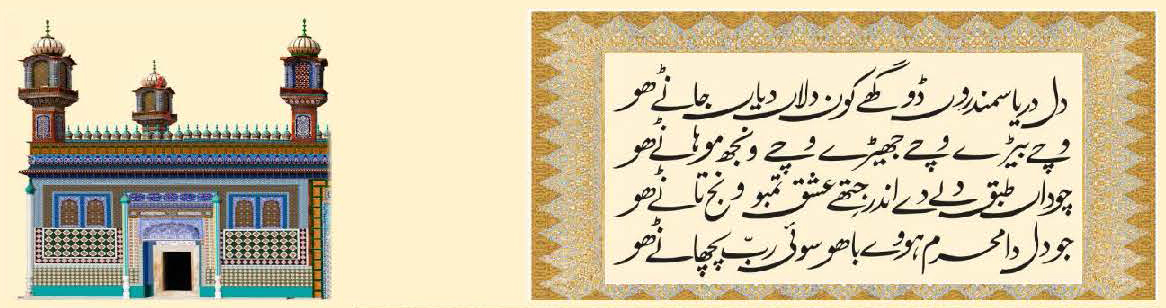 دل دریا سمندروں ڈونگھے کون دلاں دیاں جانے ھو
وچے بیڑے وچے جھیڑے وچے ونجھ موہانے ھو
چوداں طبق دلے دے اندر جتھے عشق تمبو ونج تانے ھو
جو دل دا محرم ہووے باھو سوئی ربّ پچھانے ھو